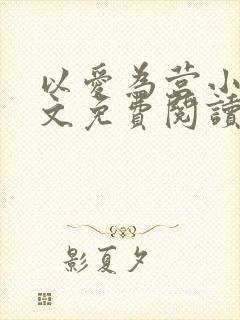 以愛為营小
文免費閱讀
影夏夕